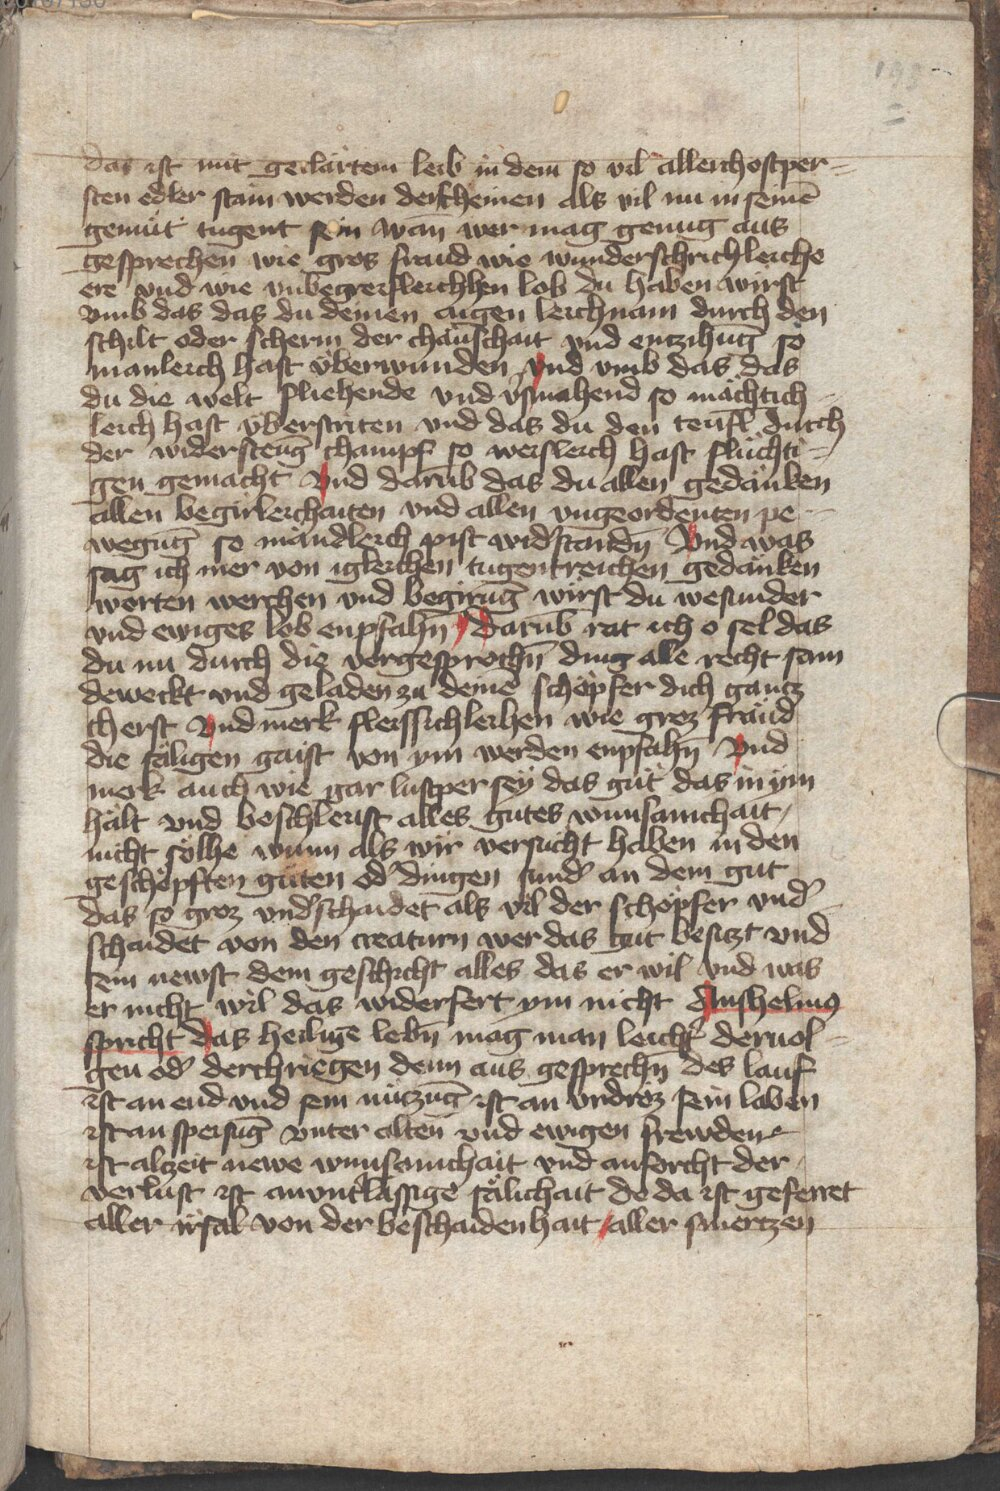 193
das ist mit geclärtem leib in dem so vil allerchostper=
sten edler stain werden derscheinen als vil nu in seinē
gemüt tugent sein wan wer mag genug aus
gesprechen wie gros fraud wie wunderschrichleiche
ere vnd wie vnbegreifleichhen lob du haben wirst
vmb das das du deinen aigen leichnam durch den
schilt oder scherm der chaüschait vnd entzihūg so
manleich hast vberwunden vnd vmb das das
du die welt fliehende vnd vʾsmahend so mächtich=
leich hast vberstriten vnd das du den teufl durch
der widersteūg champf so weisleich hast flüchti=
gen gemacht Vnd darūb das du allen gedänken
allen begirleichaiten vnd allen vngeordenten pe=
wegūg so mändleich pist widʾstandn̄ Vnd was
sag ich mer von igleichen tugentreichen gedänken
worten werchen vnd begirūg wirst du wesunder
vnd ewiges lob enpfahn̄ Darūb rat ich o sel das
du nu durch die vorgesprochn̄ ding alle recht sam
deweckt vnd geladen zu deinē schöpfer dich gantz
cherst Vnd merk fleissichleihen wie groz fräud
die säligen gaist von ym werden enpfahn̄ Vnd
merk auch wie gar lustper sey das güt das in ym
hält vnd beschleust alles gutes wunsamchait
nicht sölhe wunn als wir versücht haben in den
geschöpften güten odʾ dingen sundʾ an dem gut
das so groz vndʾschaidet als vil der schöpfer vndʾ=
schaidet von den creaturn wer das gut besitzt vnd
sein newst dem geschicht alles das er wil vnd was
er nicht wil das widerfert ym nicht Anshelmus
spricht das heilige lebn̄ mag man leichtʾ deruol=
gen odʾ derchriegen denn aus gesprechn̄ des lauf
ist an end vnd sein nützūg ist an vrdroz sein laben
ist an speisūg vnter alten vnd ewigen frewden
ist alzeit newe wunsamchait vnd an forcht der
verlust ist an vntʾlässige sälichait do da ist geferret
aller irsal von der beschaidenhait aller smertzen